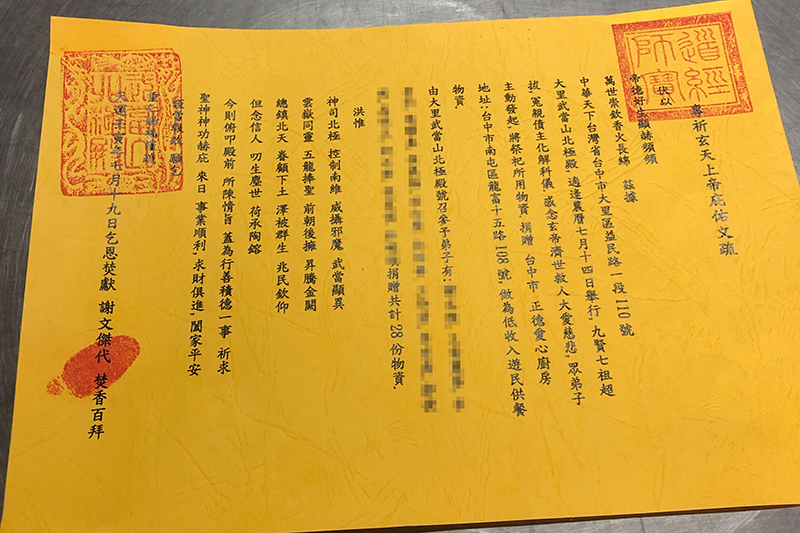 道經師寶
專祈玄天上帝庇佑文疏
伏以
帝德好生顯赫頻頻
萬世崇欽香火長綿 茲據
中華天下台灣省台中市大里區益民路一段110號
大里武當山北極殿,適逢農曆七月十四日舉行,九賢七祖超
拔,冤親債主化解科儀,感念玄帝濟世救人大愛慈悲,眾弟子
主動發起,將祭祀所用物資,捐贈 台中市 正德愛心廚房
地址:台中市南屯區龍富十五路108號,做為低收入遊民供餐
物資.
由大里武當山北極殿號召參予弟子有:
捐贈共計28份物資.
洪惟
神司北極 控制南維 威攝邪魔 武當顯異
雲嶽同靈 五龍捧聖 前朝後擁 昇騰金闕
總鎮北天 眷顧下土 澤被群生 兆民欽仰
但念信人 叨生塵世 荷承陶鎔
今則俯叩殿前 所陳情旨 蓋為行善積德一事 祈求
聖神神功赫庇 來日 事業順利,求財俱進,闔家平安
天運壬寅年七月十九日乞恩焚獻 謝文傑代 焚香百拜